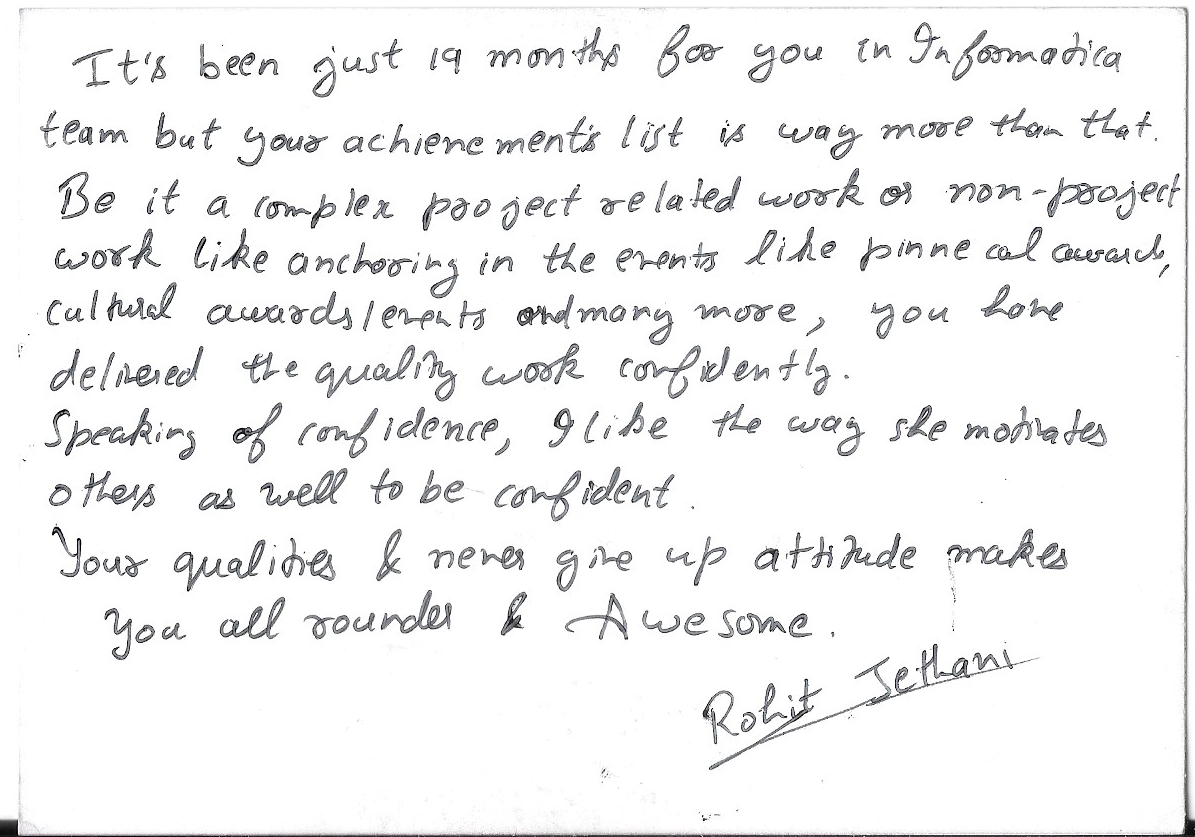 It's been just 19 months for you in Informatica
team but your achievement's list is way more than that.
Be it a complex project related work or non-project
work like anchoring in the events like pinnecal awards,
cultural awards/events and many more, you have
delivered the quality work confidently.
Speaking of confidence, I like the way she motivates
others as well to be confident.
Your qualities & never give up attitude makes
You all rounder & Awesome.
Rohit Jethani